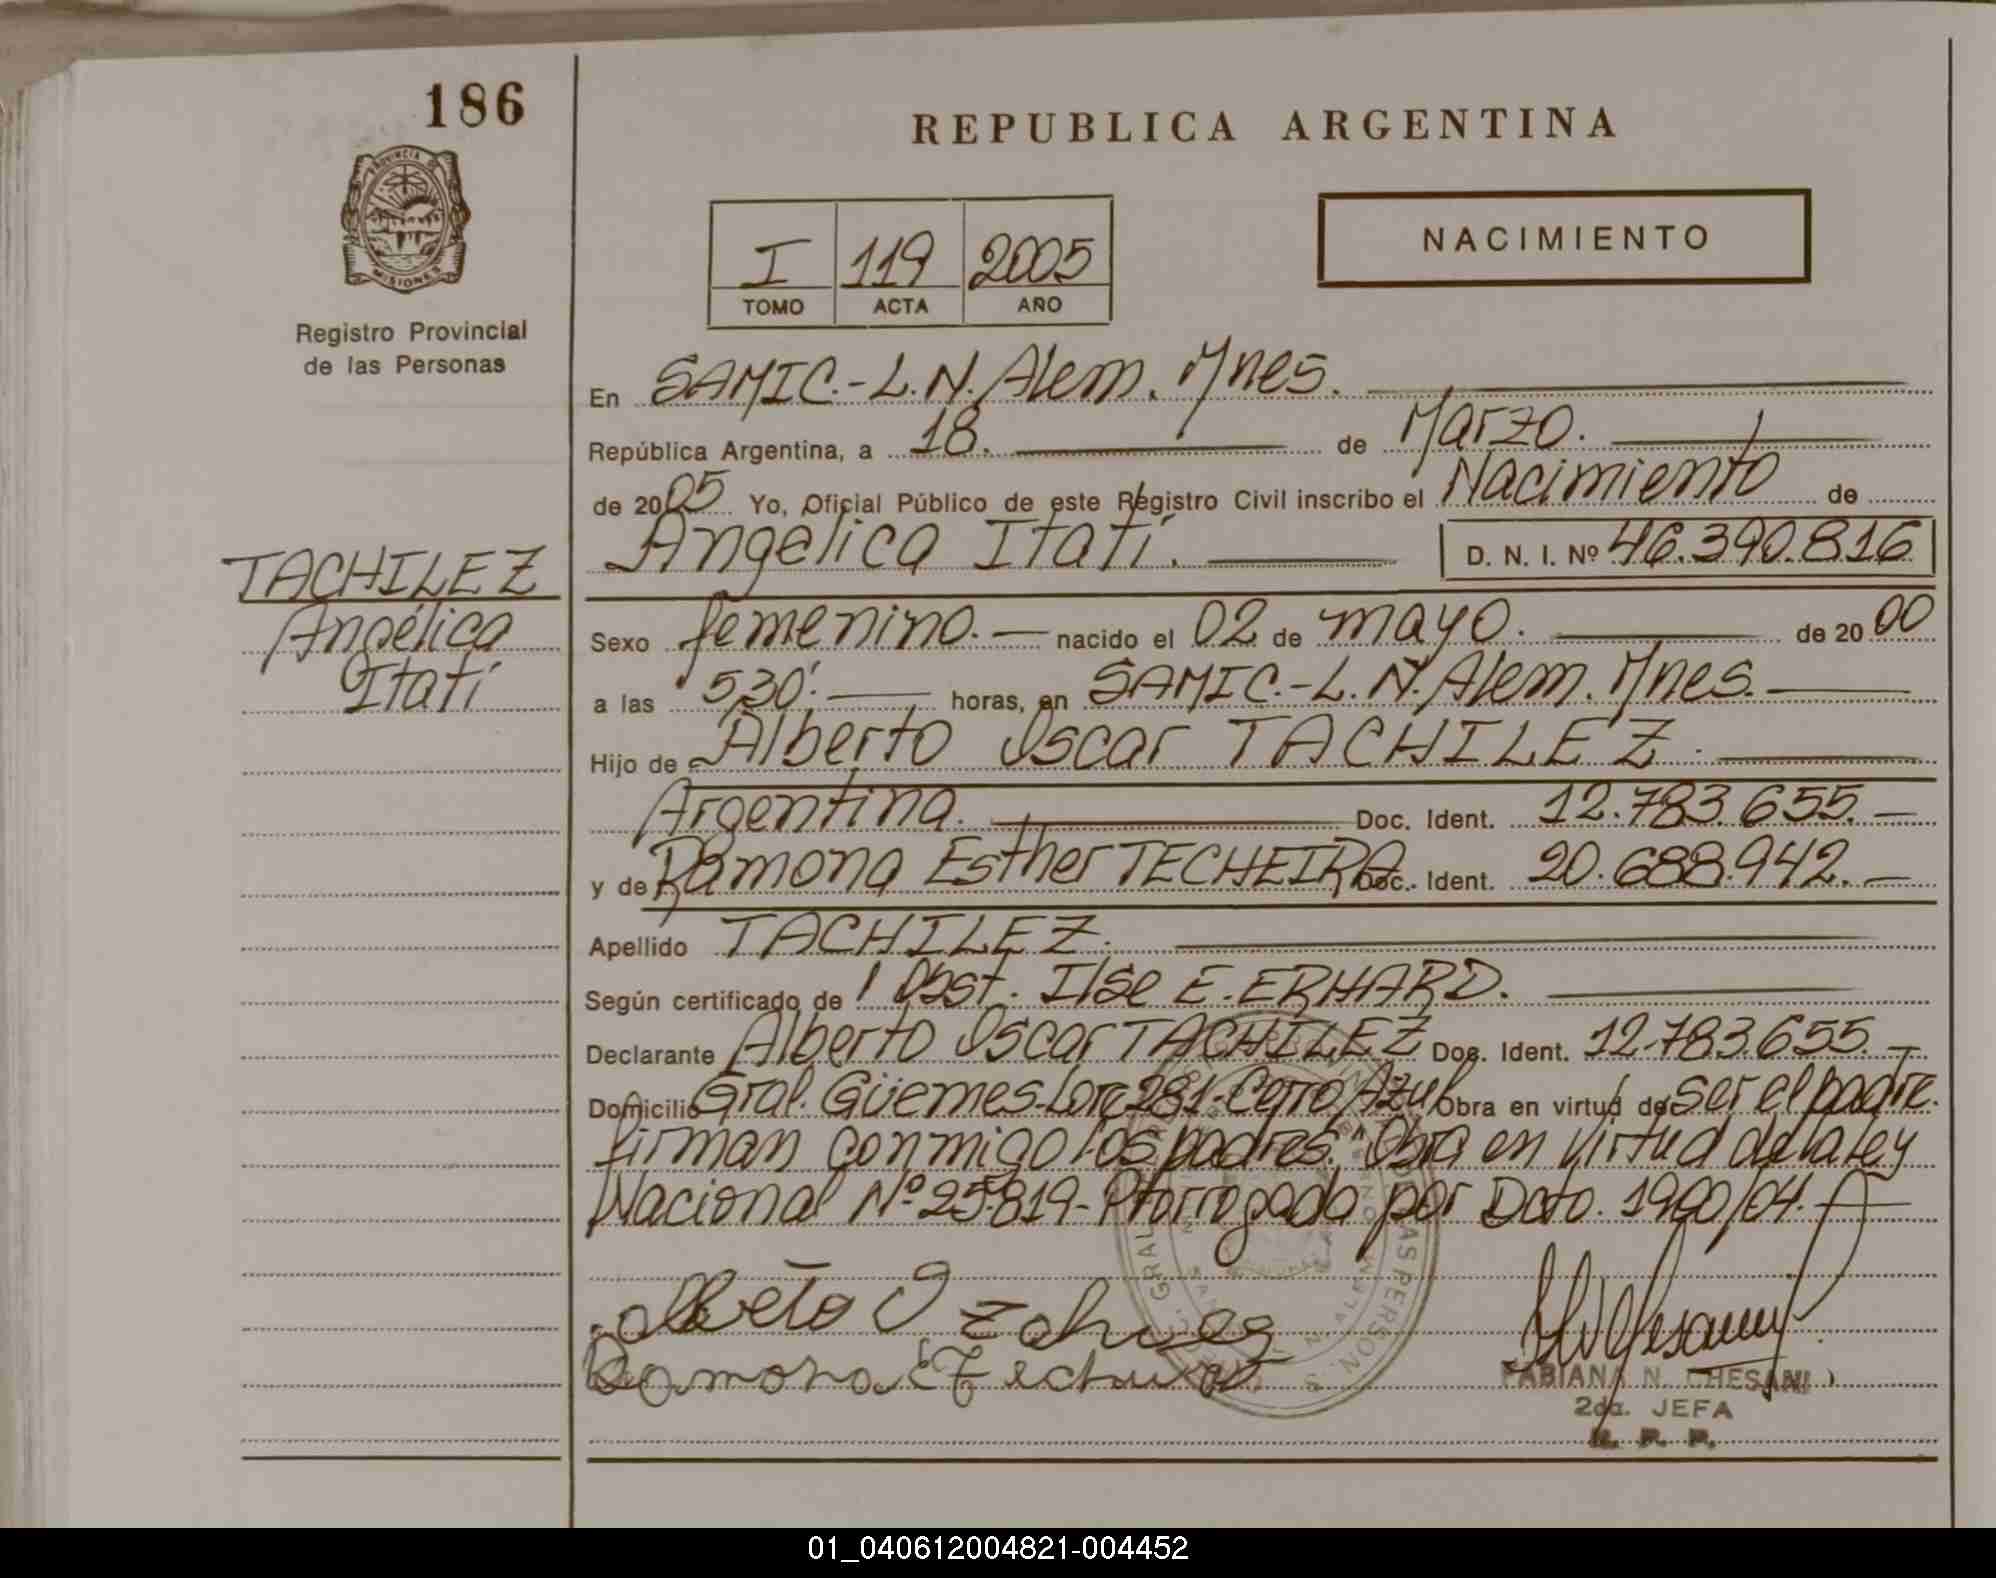 186
REPUBLICA ARGENTINA
PROVINCIA DE
MISIONES
Registro Provincial
de las Personas
I 119 2005
TOMO ACTA AÑO
NACIMIENTO
En SAMIC.-L.N.Alem. Mnes.
República Argentina, a 18. de Marzo.
de 2005 Yo, Oficial Público de este Registro Civil inscribo el Nacimiento de
Angélica Itatí. D. N. I. Nº 46.390.816
TACHILEZ
Angélica
Itatí
Sexo femenino. nacido el 02 de mayo. de 2000
a las 5,30'. horas, en SAMIC.-L.N.Alem. Mnes.
Hijo de Alberto Oscar TACHILEZ.
Argentina. Doc. Ident. 12.783.655.-
y de Ramona Esther TECHEIRA Doc. Ident. 20.688.942.-
Apellido TACHILEZ.
Según certificado de Obst. Ilse E. ERHARD.
Declarante Alberto Oscar TACHILEZ Doc. Ident. 12.783.655.-
Domicilio Gral. Güemes-Lote 281-Cerro Azul Obra en virtud de ser el padre.
firman conmigo los padres. "Obra en virtud de la ley
Nacional Nº 25.819- Prorrogada por Dcto. 1990/04.-
Ramona E
FABIANA N. CHESANI
2da. JEFA
R. P. P.
01_040612004821-004452